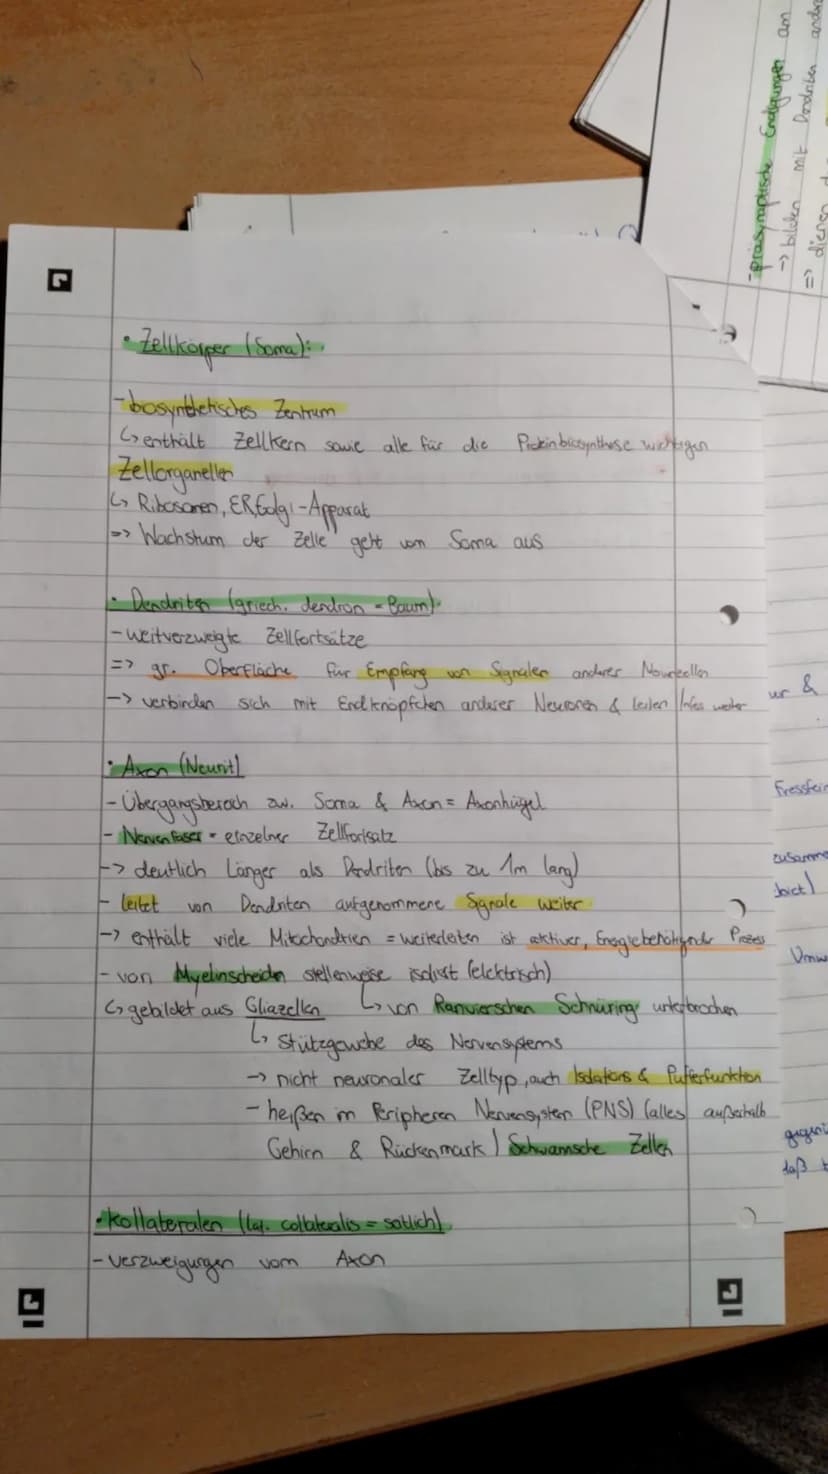 • Zellkörper (Soma):
- biosynthetisches Zentrum
↳ enthält Zellkern sowie alle für die Proteinbiosynthese wichtigen
Zellorganellen
↳ Ribosomen, ER, Golgi-Apparat
=> Wachstum der Zelle geht vom Soma aus
• Dendriten (griech. dendron = Baum):
- weitverzweigte Zellfortsätze
=> gr. Oberfläche für Empfang von Signalen anderer
-> verbinden sich mit Endknöpfchen anderer Neuronen & leiten Infos weiter
• Axon (Neurit)
- Übergangsbereich zw. Soma & Axon = Axonhügel
- Nervenfaser = einzelner Zellfortsatz
-> deutlich Länger als Dendriten (bis zu 1m lang)
- leitet von Dendriten aufgenommene Signale weiter
-> enthält viele Mitochondrien = weiterleiten ist aktiver, Energiebenötigender Prozess
- von Myelinscheiden stellenweise isoliert (elektrisch)
↳ gebildet aus Gliazellen ↳ von Ranvierschen Schnüring unterbrochen
↳ Stützgewebe des Nervensystems
-> nicht neuronaler Zelltyp, auch Isolations & Pufferfunktion
- heißen im Peripheren Nervensystem (PNS) (alles außerhalb
Gehirn & Rückenmark) Schwannsche Zellen
• Kollateralen (lat. collateralis = seitlich)
- Verzweigungen vom Axon
- präsynaptische Endigungen am
-> bilden mit Dendriten
=> dienen
ur &
zusamme
gegeni
daß